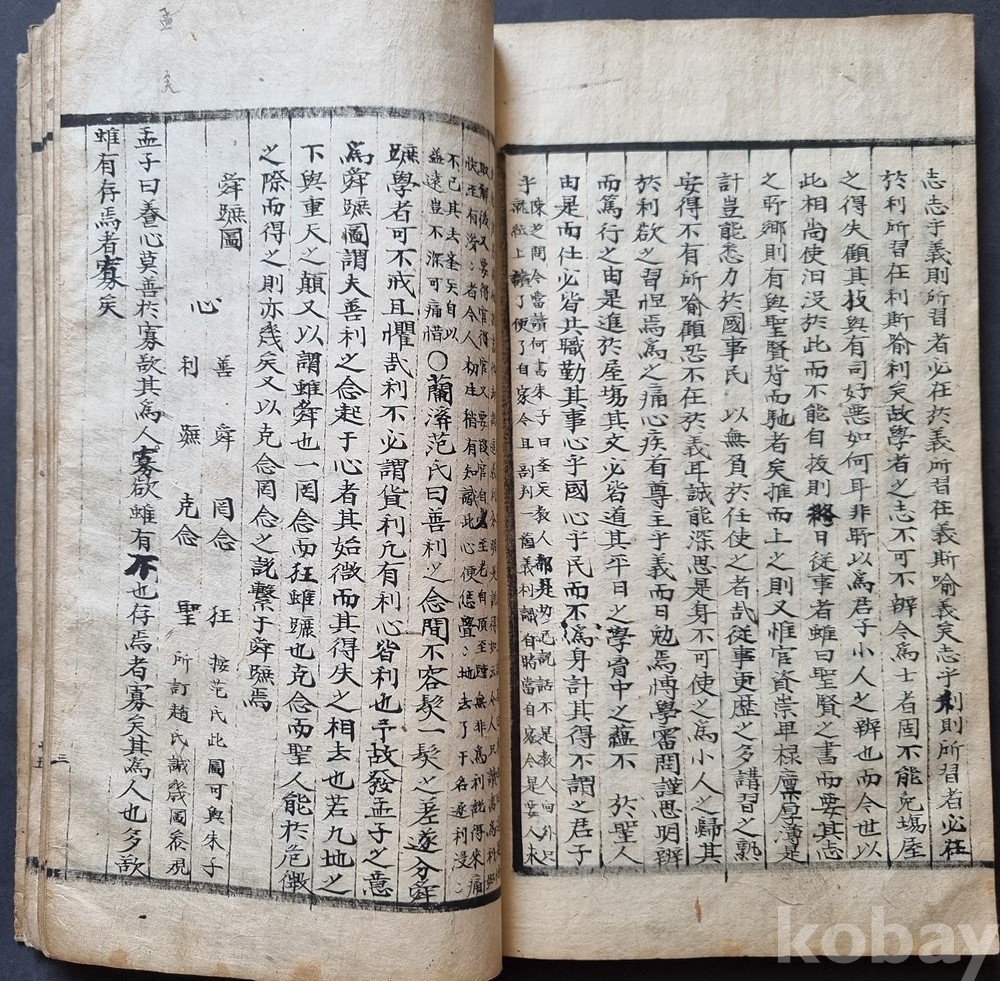 志志乎義則所習者必在於義所習在義斯喻義矣志乎利則所習者必在
於利所習在利斯喻利矣故學者之志不可不辨今爲士者固不能免場屋
之得失顧其技與有司好惡如何耳非所以爲君子小人之辨也而今世以
此相尚使汩沒於此而不能自拔則終日從事者雖曰聖賢之書而要其志
之所鄉則有與聖賢背而馳者矣推而上之則又惟官資崇卑祿廩厚薄是
計豈能悉力於國事民 以無負於任使之者哉從事更歷之多講習之熟
安得不有所喻顧恐不在於義耳誠能深思是身不可使之爲小人之歸其
於利欲之習怛焉爲之痛心疾首專主乎義而日勉焉博學審問謹思明辨
而篤行之由是進於屋場其文必皆道其平日之學胷中之蘊不 於聖人
由是而仕必皆共職勤其事心乎國心乎民而不爲身計其得不謂之君子
乎
陳芝問今當讀何書朱子曰圣天教人都是切己說話不是教人向外只
就紙上讀了便了自家今且剖判一箇義利試自睹當自家今是要人求
取解後又要得官得官又要改官自少至老自頂至踵無非爲利說得來痛
快至有流涕者今人初生稍有知識此心便恁亹亹地去了干名逐利浸浸
不已其去圣矣自以
益遠豈不深可痛惜
〇蘭溪范氏曰善利之念間不容髮一髮之差遂分舜
蹠學者可不戒且懼哉利不必謂貨利凡有利心皆利也予故發孟子之意
爲舜蹠圖謂夫善利之念起于心者其始微而其得失之相去也若九地之
下與重天之顛又以謂雖舜也一罔念而狂雖蹠也克念而聖人能於危微
之際而得之則亦幾矣又以克念罔念之說繫于舜蹠焉
舜蹠圖
善 舜 罔念 狂
心
利 蹠 克念 聖
按范氏此圖可與朱子
所訂趙氏誠幾圖叅視
孟子曰養心莫善於寡欲其爲人寡欲雖有不也存焉者寡矣其爲人也多欲
雖有存焉者寡矣
孟
矣
三
kobay